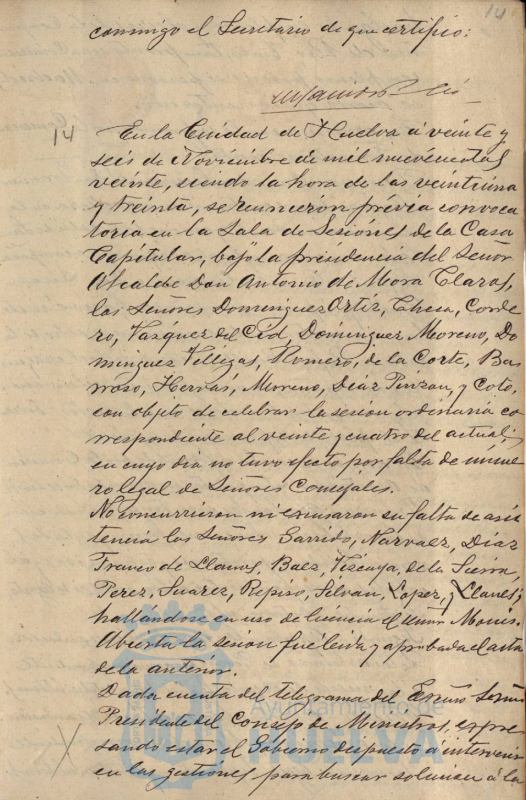 14
conmigo el Secretario de que certifico:
14
En la Ciudad de Huelva á veinte y
seis de Noviembre de mil nuevecientos
veinte, siendo la hora de las veintiuna
y treinta, se reunieron prévia convoca
toria en la Sala de Sesiones de la Casa
Capitular, bajo la presidencia del Señor
Alcalde Don Antonio de Mora Claros,
los Señores Dominguez Ortiz, Checa, Corde
ro, Vazquez del Cid, Dominguez Moreno, Do
minguez Villegas, Romero, de la Corte, Ba
rroso, Hervas, Moreno, Diaz Pinzon, y Coto,
con objeto de celebrar la sesion ordinaria co
rrespondiente al veinte y cuatro del actual;
en cuyo dia no tuvo efecto por falta de núme
ro legal de Señores Concejales.
No concurrieron ni escusaron su falta de asis
tencia los Señores Garrido, Narvaez, Diaz
Franco de Llanos, Baez, Vizcaya, de la Sierra,
Perez, Suarez, Repiso, Silvan, Lopez, y Llanes;
hallandose en uso de licencia el Señor Monis.
Abierta la sesion fue leida y aprobada el acta
de la anterior.
Dada cuenta del telegrama del Excmo Señor
Presidente del Consejo de Ministros, expre
sando estar el Gobierno dispuesto a intervenir
en las gestiones para buscar solucion á la
Ayuntamiento de
HUELVA